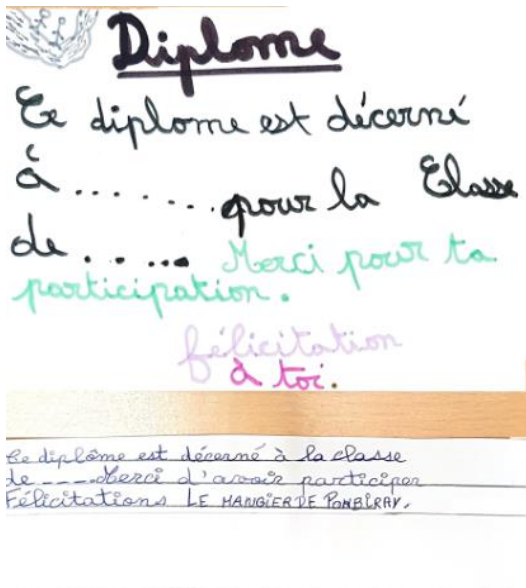 Diplome
Ce diplome est décerné
à ......... pour la Classe
de ..... Merci pour ta
participation.
félicitation
à toi.
Ce diplôme est décerné à la classe
de ---- Merci d'avoir participer
Félicitations LE MANGIER DE